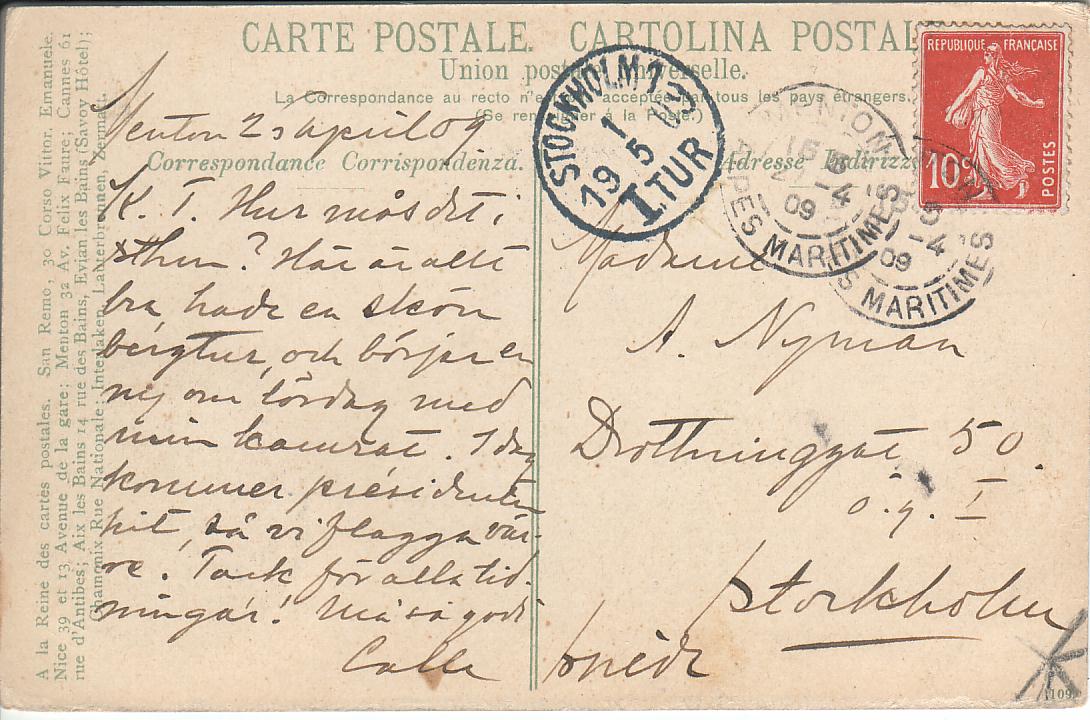 CARTE POSTALE. CARTOLINA POSTAL
Union postale universelle.
La Correspondance au recto n'est acceptée par tous les pays étrangers.
(Se renseigner à la Poste.)
Correspondance Corrispondenza.
Adresse Indirizzo
A la Reine des cartes postales. San Remo, 30 Corso Vittor. Emanuele.
Nice 39 et 13 Avenue de la gare; Menton 32 Av. Felix Faure; Cannes 61
rue d'Antibes; Aix les Bains 14 rue des Bains, Evian les Bains (Savoy Hôtel);
Chamonix Rue Nationale; Interlaken, Lauterbrunnen, Zermatt.
Menton 23 april 09
K. T. Hur mås det i
sthm? Här är allt
bra, hade en skön
bergtur, och börjar en
ny om lördag med
min kamrat. I dag
kommer presidenten
hit, så vi flagga
Tack för alla tid-
ningar! Må så godt
Calle
STOCKHOLM 1
1 5 09
19
I.TUR
MENTON
15
-4
09
ALPES MARITIMES
-4
09
ES MARITIMES
REPUBLIQUE FRANÇAISE
10c
POSTES
Madame
A. Nyman
Drottninggat 50.
ö.g. I
Stockholm
Suède
1109